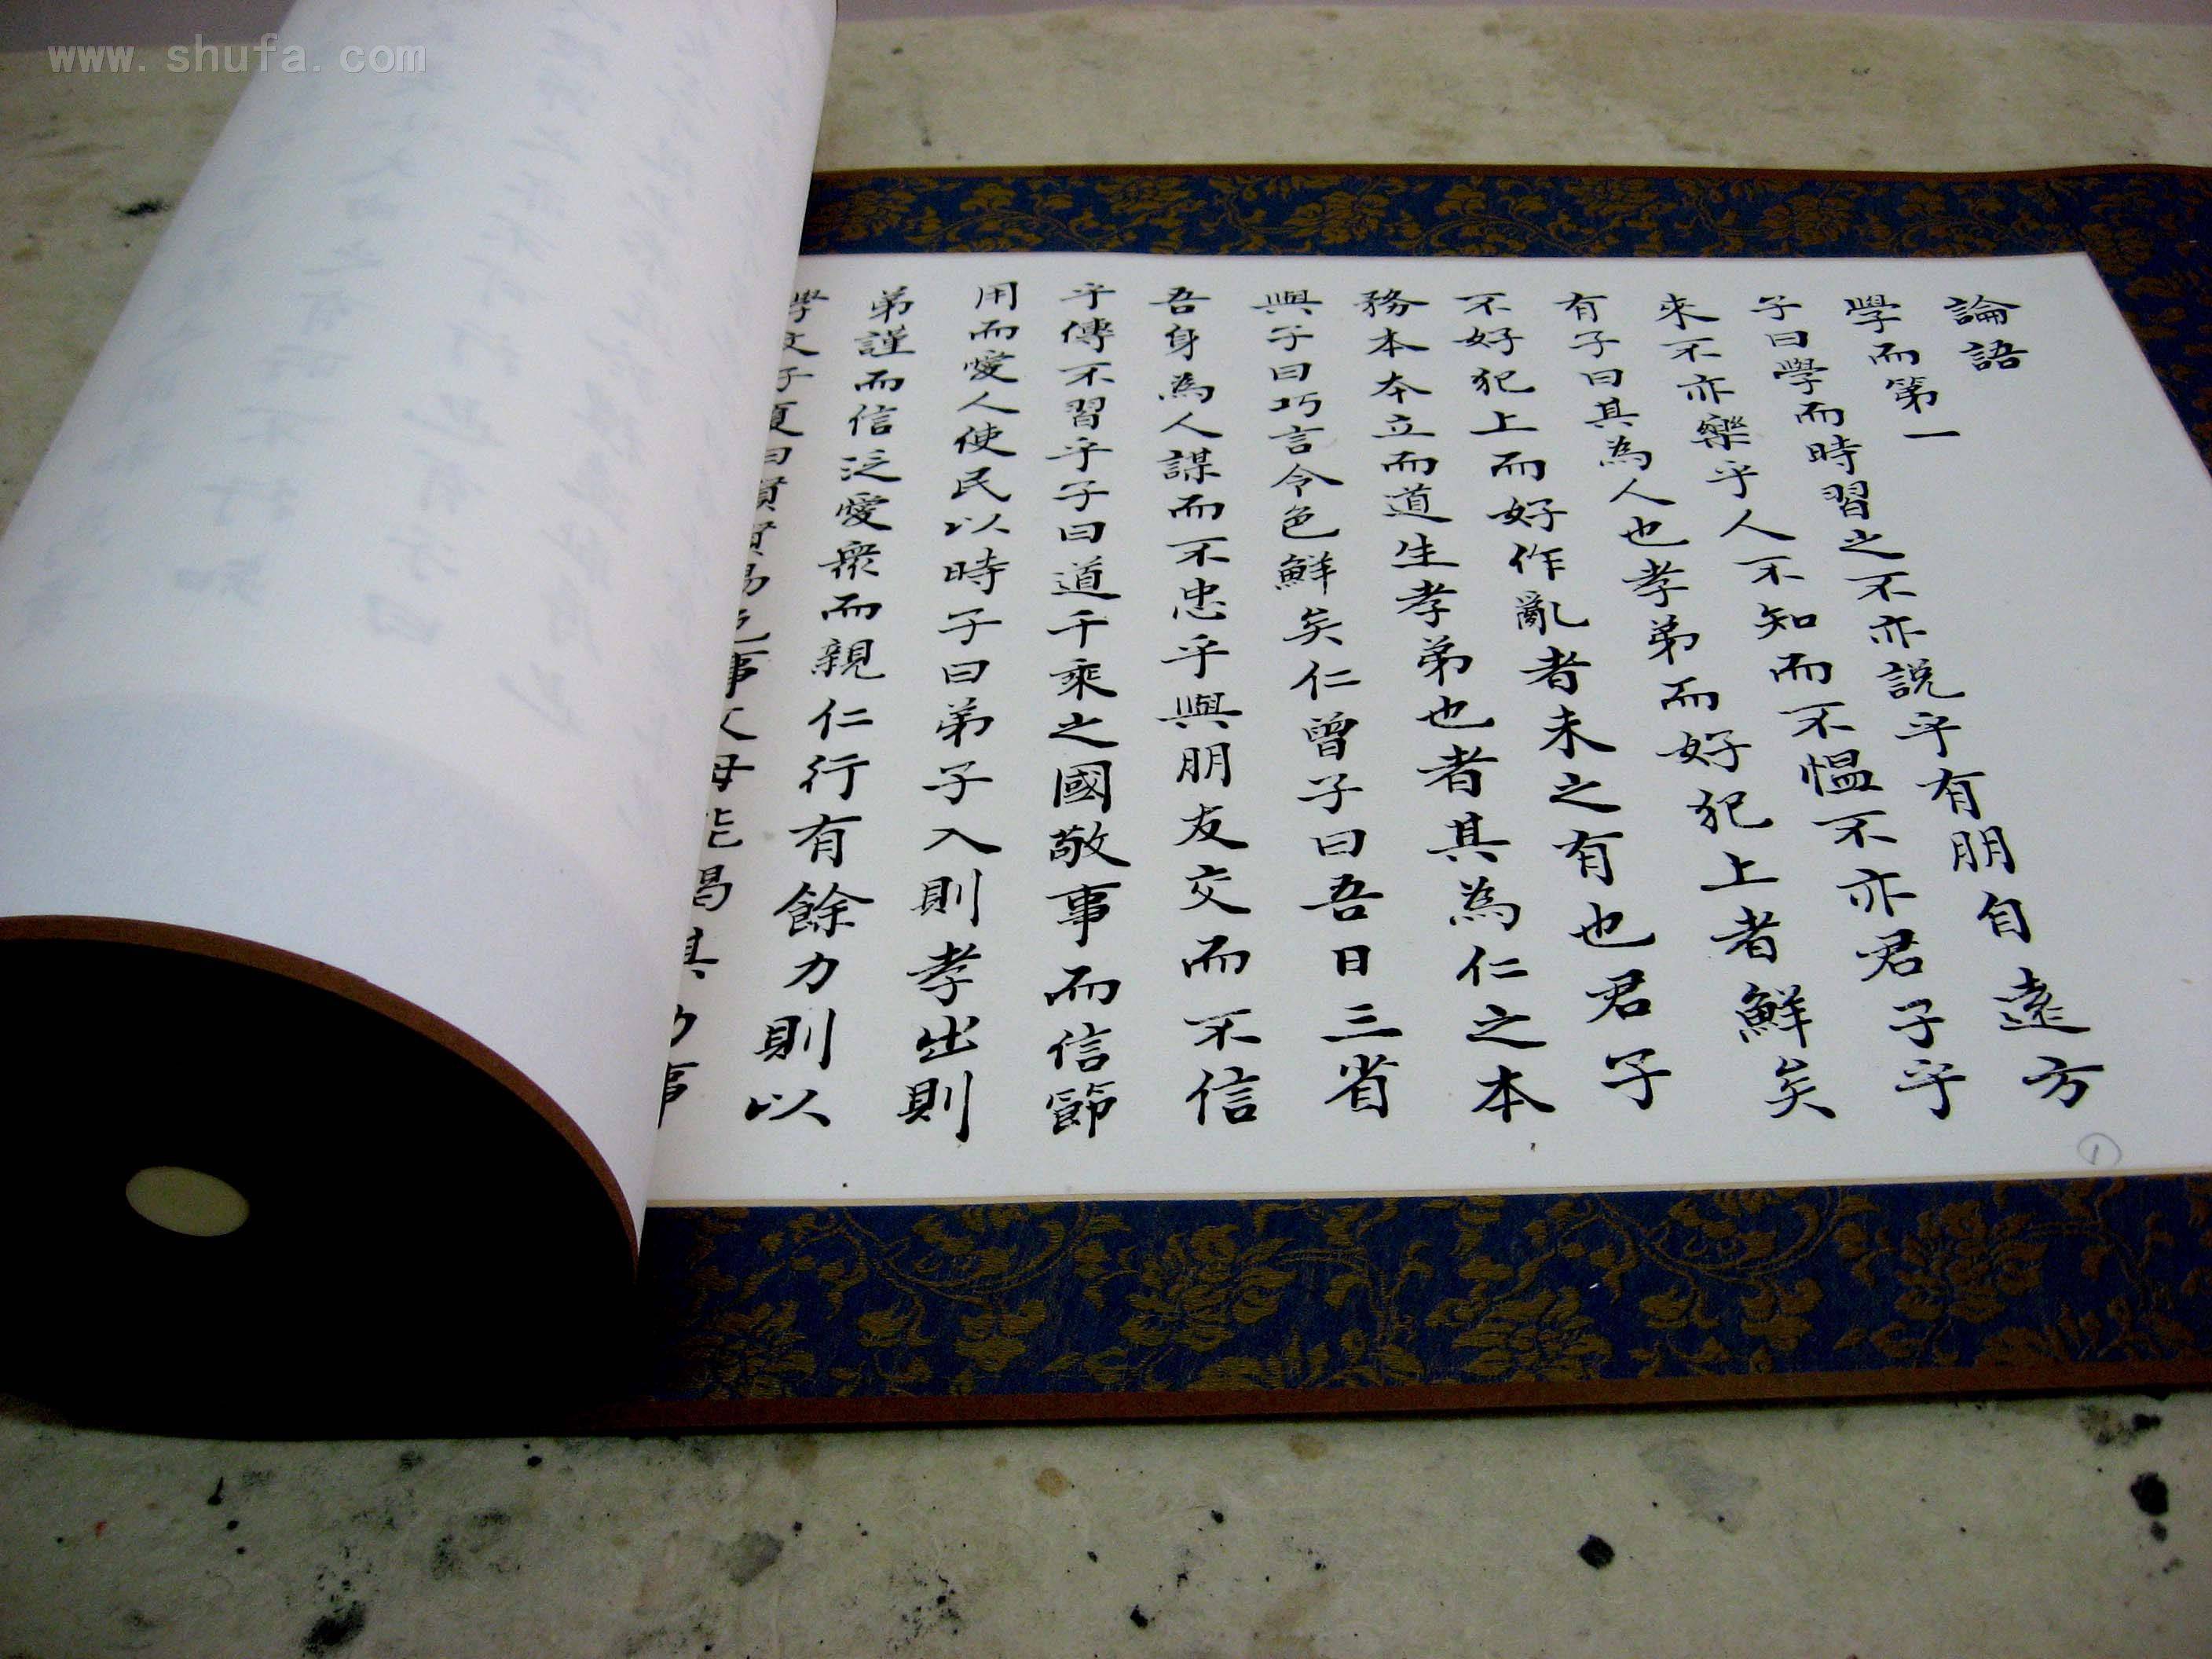 www.shufa.com
論語
學而第一
子曰學而時習之不亦説乎有朋自遠方
來不亦樂乎人不知而不愠不亦君子乎
有子曰其為人也孝弟而好犯上者鮮矣
不好犯上而好作亂者未之有也君子
務本本立而道生孝弟也者其為仁之本
與子曰巧言令色鮮矣仁曾子曰吾日三省
吾身為人謀而不忠乎與朋友交而不信
乎傳不習乎子曰道千乘之國敬事而信節
用而愛人使民以時子曰弟子入則孝出則
弟謹而信泛愛衆而親仁行有餘力則以
學文子夏曰賢賢易色事父母能竭其力事